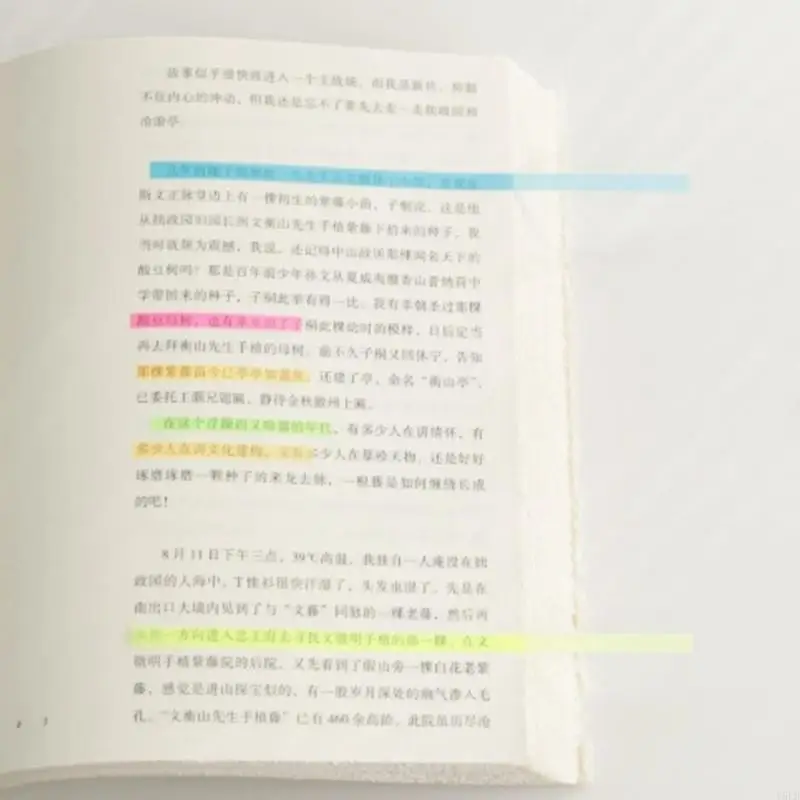 故事似乎很快就进入一个主战场，而我
不住内心的冲动，但我还是忘不了要先去看一去拙政园和
沧浪亭。
斯文正脉堂边上有一棵初生的紫藤小苗，子桐说，这是他
从拙政园旧园长所文衡山先生手植紫藤下拾来的种子，我
当时就颇为震撼，我说，还记得中山故居那棵闻名天下的
酸豆树吗？那是百年前少年孙文从夏威夷檀香山普纳荷中
学带回来的种子，子桐此举有得一比。我有幸朝圣过那棵
酸豆母树，也有幸见到了子桐此棵幼时的模样，日后定当
再去拜衡山先生手植的母树。前不久子桐又回休宁，告知
那棵紫藤苗今已亭亭如盖矣，还建了亭，命名“衡山亭”，
已委托工匠兄题匾，静待金秋徽州上匾。
在这个浮躁而又喧嚣的年代，有多少人在讲情怀，有
多少人在讲文化建构，又有多少人在暴殄天物，还是好好
琢磨琢磨一颗种子的来龙去脉，一根藤是如何缠绕长成
的吧！
8月11日下午三点，39℃高温，我独自一人淹没在拙
政园的人海中，T恤衫很快汗湿了，头发也湿了。先是在
南出口大墙内见到了与“文藤”同龄的一棵老藤，然后再
从另一方向进入忠王府去寻找文徵明手植的那一棵。在文
徵明手植紫藤院的后院，又先看到了假山旁一棵白花老紫
藤，感觉是进山探宝似的，有一股岁月深处的幽气渗入毛
孔。“文衡山先生手植藤”已有460余高龄，此院虽历尽沧